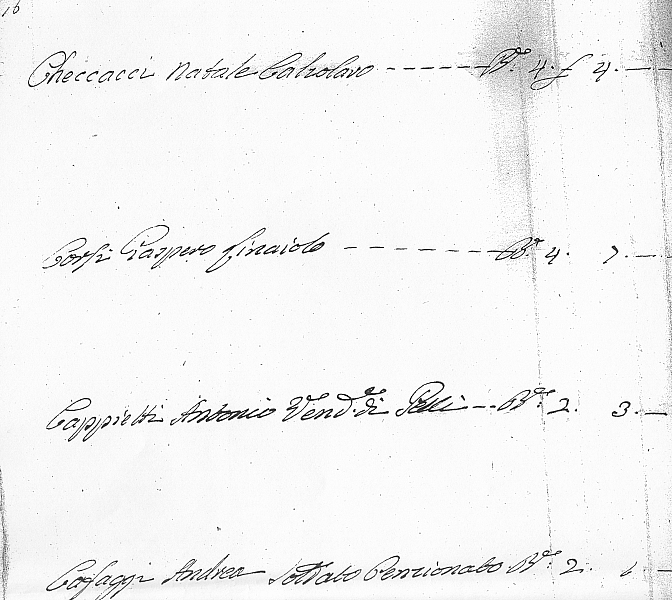 16
Checcacci Natale Calzolaro ------ Bᵉ. 4. £ 4. —
Corsi Gaspero Linaiolo ------ Bᵉ. 4. 7. —
Cappietti Antonio Vend.ᵈᵉ di Pelli -- Bᵉ. 2. 3. —
Casaggi Andrea Soldato Penzionato Bᵉ. 2. 6 —